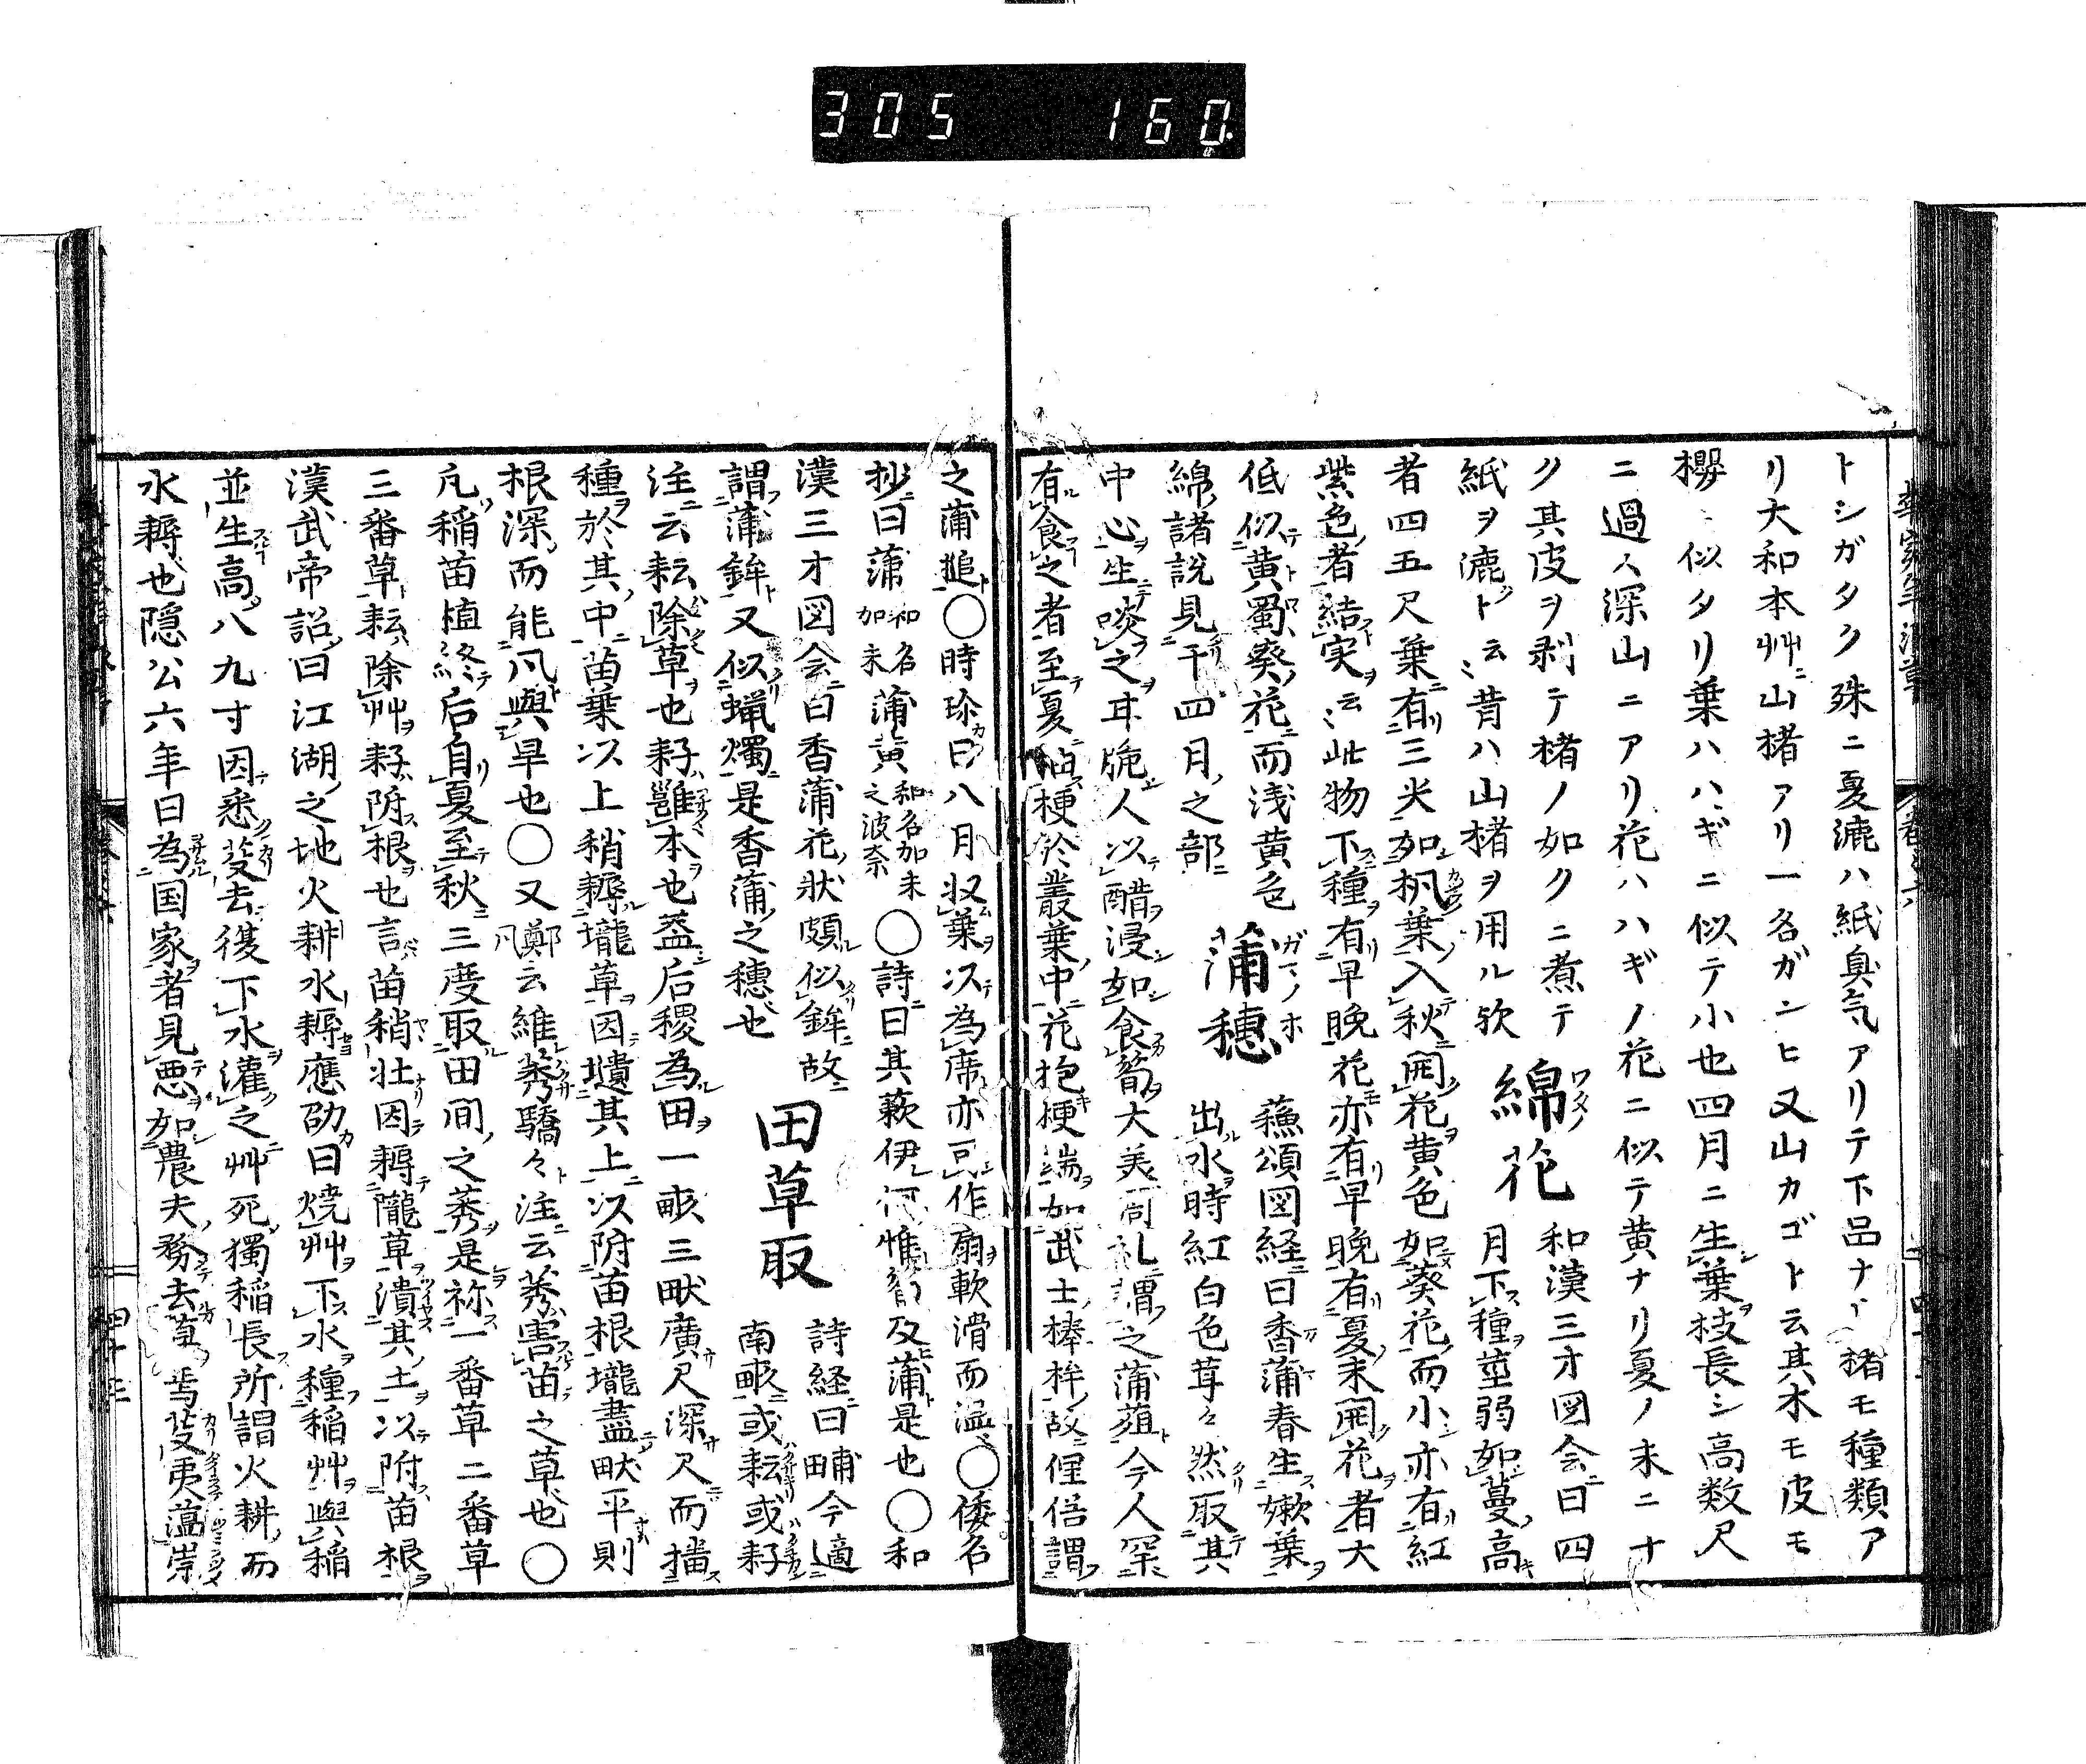 305 160
トシガタク殊ニ夏漉ハ紙臭気アリテ下品ナ 楮モ種類ア
リ大和本艸ニ山楮アリ一名ガンヒ又山カゴト云其木モ皮モ
櫻ニ似タリ葉ハハギニ似テ小也四月ニ生葉枝長シ高数尺
ニ過ス深山ニアリ花ハハギノ花ニ似テ黄ナリ夏ノ末ニナ
ク其皮ヲ剥テ楮ノ如クニ煮テ
紙ヲ漉ト云〻昔ハ山楮ヲ用ル歟
綿花
和漢三才図会曰四
月下種莖弱如蔓高
者四五尺葉有三尖如枫葉入秋開花黄色如葵花而小亦有紅
紫色者結実云〻此物下種有早晩花亦有早晩有夏末開花者大
低似黄蜀葵花而浅黄色
綿諸説見于四月之部
蒲穂
蘓頌図経曰香蒲春生嫰葉
出水時紅白色茸々然取其
中心生啖之耳脆人以醋浸如食筍大美周礼謂之蒲葅今人罕
有食之者至夏抽梗於叢葉中花抱梗端如武士棒杵故俚俗謂
之蒲搥〇時珍曰八月収葉以為席亦可作扇軟滑而温〇倭名
抄曰蒲和名加末蒲黄和名加末之波奈〇詩曰其蔌伊何惟筍及蒲是也〇和
漢三才図会曰香蒲花状頗似鉾故
謂蒲鉾又似蝋燭是香蒲之穂也
田草取
詩経曰畴今適
南畝或耘或耔
注云耘除草也耔雝本也蓋后稷為田一畝三畎廣尺深尺而播
種於其中苗葉以上稍耨壠草因壝其上以附苗根壠盡畎平則
根深而能凨與旱也〇又鄭凨云維莠驕々注云莠害苗之草也〇
凢稲苗植終后自夏至秋三度取田間之莠是祢一番草二番草
三番草耘除艸耔附根也言苗稍壮因耨隴草潰其土以附苗根
漢武帝詔曰江湖之地火耕水耨應劭曰焼艸下水種稲艸與稲
並生高八九寸因悉芟去復下水灌之艸死獨稲長所謂火耕而
水耨也隠公六年曰為国家者見悪如農夫務去草焉芟夷蕰崇